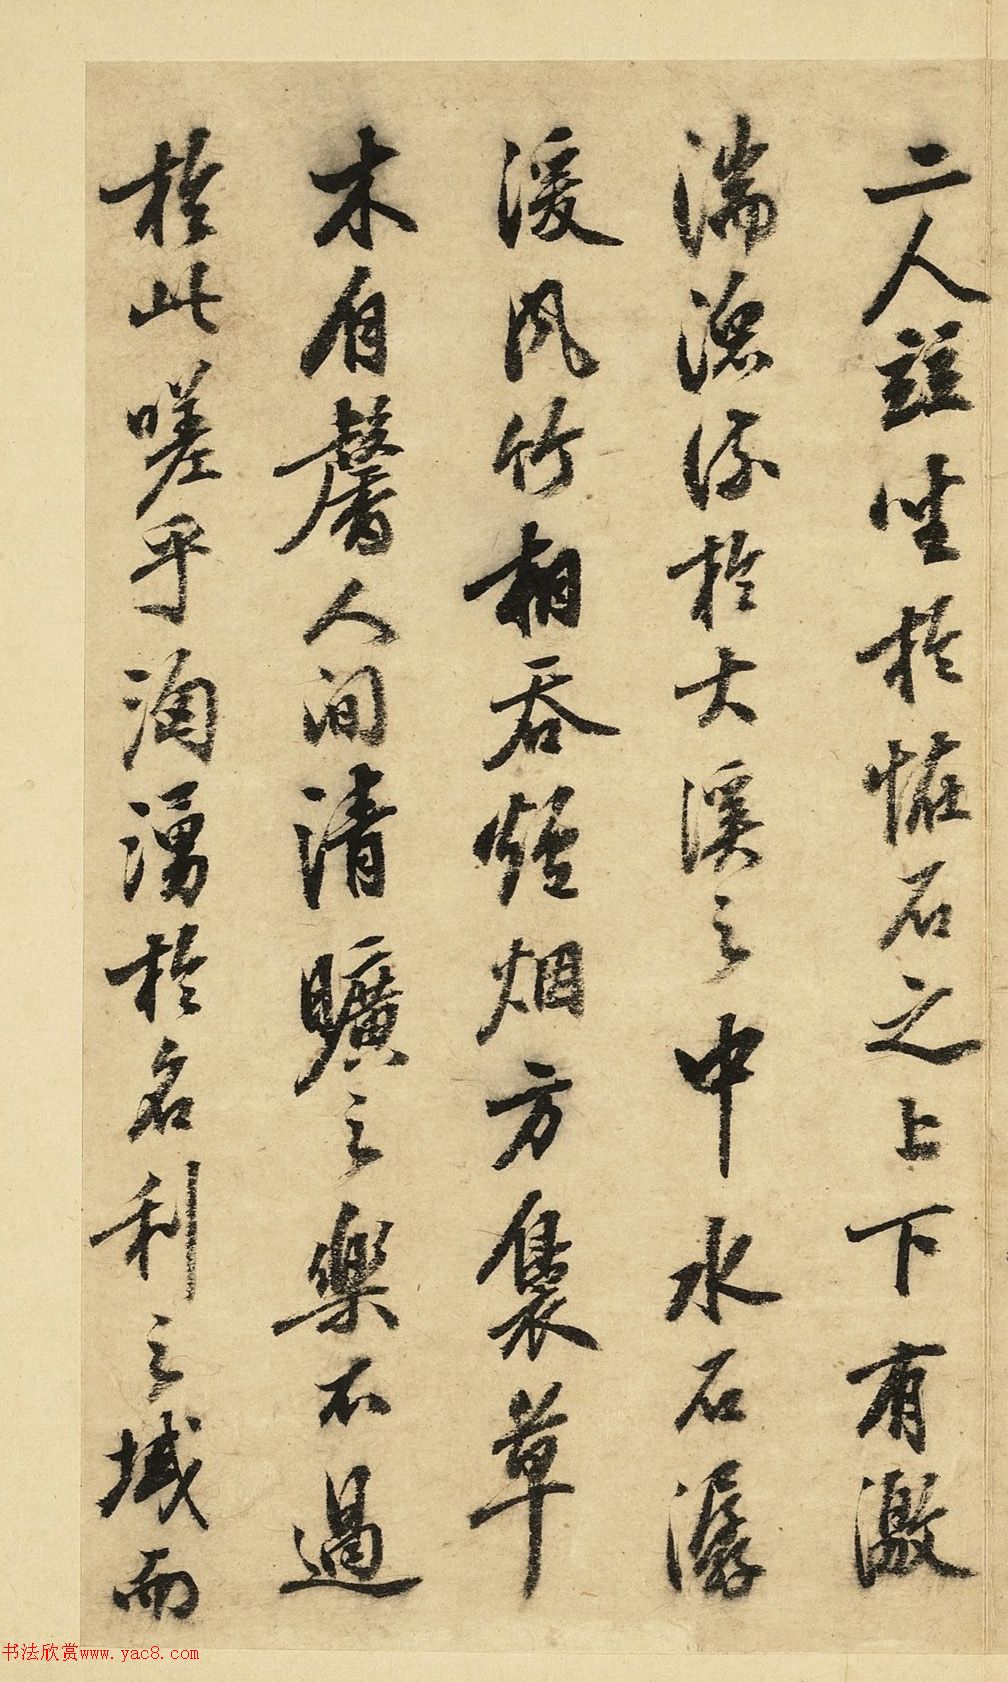 二人並坐於怪石之上下有激
湍潨流於大溪之中水石潺
湲風竹相吞爐烟方裊草
木自馨人間清曠之樂不過
於此嗟乎洶湧於名利之域而
书法欣赏www.yac8.com